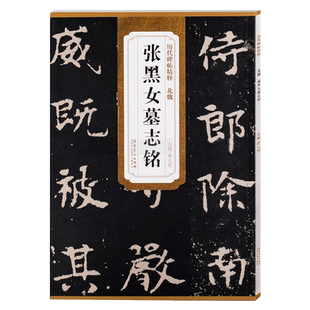 侍郎除南
历代碑帖精粹·北魏
张黑女墓志铭
嚴
威既被其